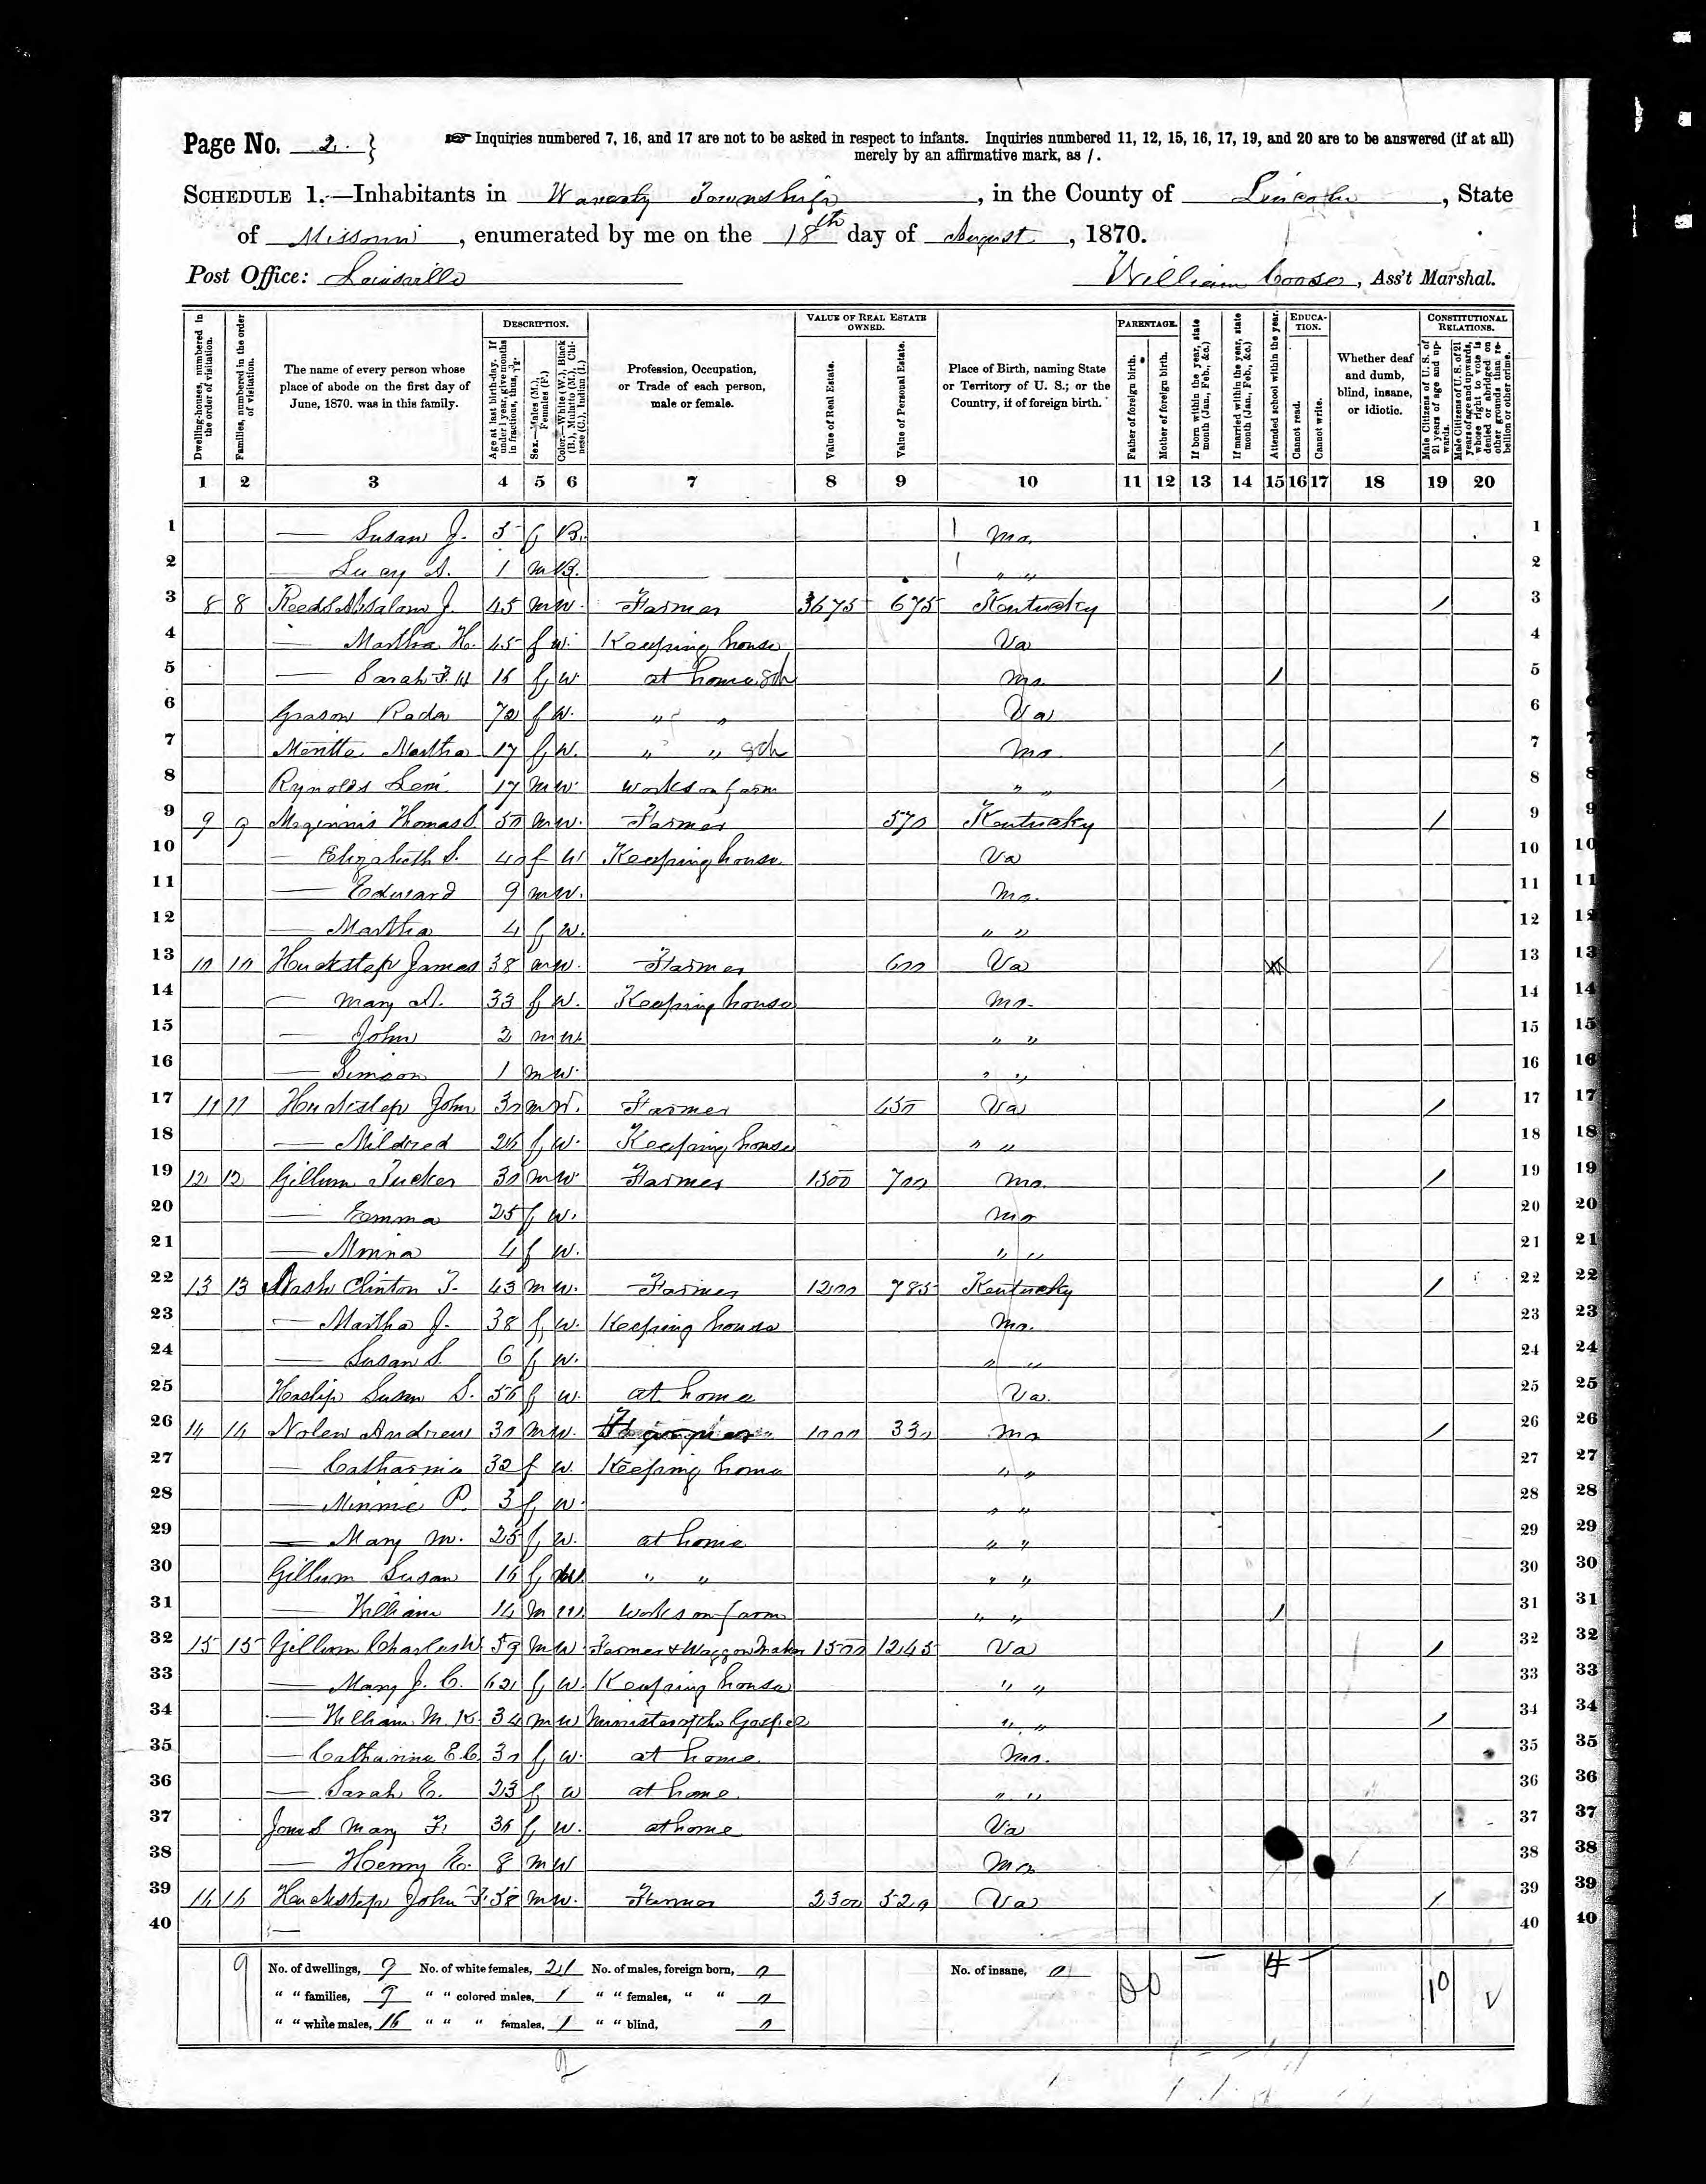 Page No. 2. }
☞ Inquiries numbered 7, 16, and 17 are not to be asked in respect to infants. Inquiries numbered 11, 12, 15, 16, 17, 19, and 20 are to be answered (if at all)
merely by an affirmative mark, as /.
SCHEDULE 1.—Inhabitants in Waverly Township, in the County of Lincoln, State
of Missouri, enumerated by me on the 18th day of August, 1870.
Post Office: Louisville William, Ass't Marshal.
Dwelling-houses, numbered in the order of visitation.
Families, numbered in the order of visitation.
The name of every person whose place of abode on the first day of June, 1870, was in this family.
DESCRIPTION.
Age at last birth-day. If under 1 year, give months in fractions, thus,
Sex.—Males (M.), Females (F.)
Color.—White (W.), Black (B.), Mulatto (M.), Chinese (C.), Indian (I.)
Profession, Occupation, or Trade of each person, male or female.
VALUE OF REAL ESTATE OWNED.
Value of Real Estate.
Value of Personal Estate.
Place of Birth, naming State or Territory of U. S.; or the Country, if of foreign birth.
PARENTAGE.
Father of foreign birth.
Mother of foreign birth.
If born within the year, state month (Jan., Feb., &c.)
If married within the year, state month (Jan., Feb., &c.)
Attended school within the year.
EDUCATION.
Cannot read.
Cannot write.
Whether deaf and dumb, blind, insane, or idiotic.
CONSTITUTIONAL RELATIONS.
Male Citizens of U. S. of 21 years of age and upwards.
Male Citizens of U. S. of 21 years of age and upwards, whose right to vote is denied or abridged on other grounds than rebellion or other crime.
1 2 3 4 5 6 7 8 9 10 11 12 13 14 15 16 17 18 19 20
1 — Susan J. 5 f B. Mo. 1
2 — Lucy A. 1 m B. " " 2
3 8 8 Reeds Absalom J. 45 m W. Farmer 3675 675 Kentucky / 3
4 — Martha H. 45 f W. Keeping house Va 4
5 — Sarah F. W 16 f W at home sch Mo. / 5
6 Grason Rada 72 f W. " " Va 6
7 Martha 17 f W. " " sch Mo. / 7
8 Rynolds Levi 17 m W works on farm " " / 8
9 9 9 Meginnis Thomas S 50 m W. Farmer 570 Kentucky / 9
10 — Elizabeth S. 40 f W Keeping house Va 10
11 — Edward 9 m W. Mo. 11
12 — Martha 4 f W. " " 12
13 10 10 Huckstep James 38 m W. Farmer 600 Va / 13
14 — Mary A. 33 f W. Keeping house Mo. 14
15 — John 2 m W. " " 15
16 — Simeon 1 m W. " " 16
17 11 11 Huckstep John 30 m W. Farmer 450 Va / 17
18 — Mildred 26 f W. Keeping house " " 18
19 12 12 Gillum Tucker 30 m W Farmer 1500 700 Mo. / 19
20 — Emma 25 f W. Mo 20
21 — 4 f W. " " 21
22 13 13 Nash Clinton T. 43 m W. Farmer 1200 785 Kentucky / 22
23 — Martha J. 38 f W. Keeping house Mo. 23
24 — Susan S. 6 f W. " " 24
25 Haslip Susan S. 56 f W. at home Va. 25
26 14 14 Nolen Andrew 30 m W. Farmer 1000 330 Mo / 26
27 — Catharine 32 f W. Keeping home " " 27
28 — Minnie P. 3 f W. " " 28
29 — Mary M. 25 f W. at home " " 29
30 Gillum Susan 16 f W. " " " " 30
31 — William 14 m W. works on farm " " / 31
32 15 15 Gillum Charles W. 59 m W Farmer & Waggon Maker 1500 1245 Va / 32
33 — Mary J. C. 62 f W. Keeping house " " 33
34 — William M. K. 34 m W Minister of the Gospel " " / 34
35 — Catharine E. C. 30 f W. at home Mo. 35
36 — Sarah E. 23 f W at home " " 36
37 Jones Mary F. 36 f W. at home Va 37
38 — Henry E. 8 m W Mo 38
39 16 16 Huckstep John F. 58 m W. Farmer 2300 520 Va / 39
40 — 40
9 No. of dwellings, 9 No. of white females, 21 No. of males, foreign born, 0 No. of insane, 0
" " families, 9 " " colored males, 1 " " females, " " 0 00 4 10
" " white males, 16 " " " females, 1 " " blind, 0